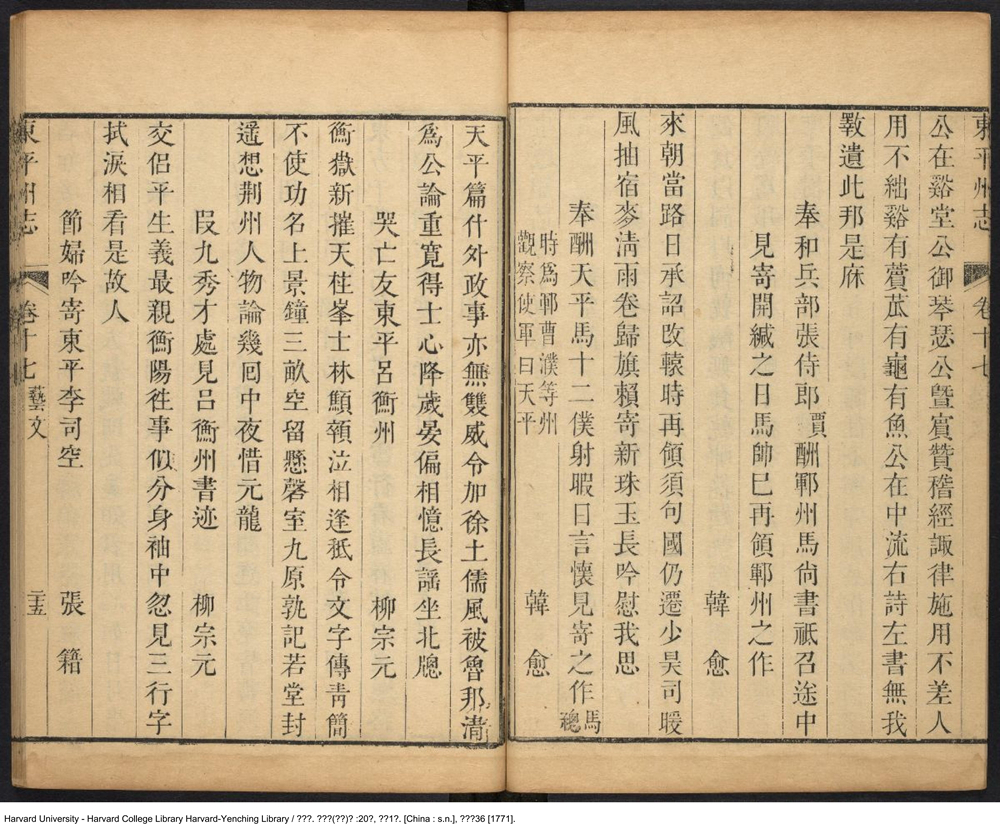 東平州志 卷十七
公在谿堂公御琴瑟公暨賓贊稽經諏律施用不差人
用不絀谿有薲苽有龜有魚公在中流右詩左書無我
斁遺此邦是庥
奉和兵部張侍郎賈酬鄆州馬尙書祇召途中
見寄開緘之日馬帥巳再領鄆州之作
韓愈
來朝當路日承詔改轅時再領須句國仍遷少昊司暖
風抽宿麥淸雨卷歸旗賴寄新珠玉長吟慰我思
奉酬天平馬十二僕射暇日言懷見寄之作馬總
時爲鄆曹濮等州
觀察使軍曰天平
韓愈
天平篇什外政事亦無雙威令加徐土儒風被魯邦淸
爲公論重寬得士心降歲晏偏相憶長謠坐北牕
哭亡友東平呂衡州 柳宗元
衡嶽新摧天柱峯士林顦顇泣相逢秖令文字傳靑簡
不使功名上景鐘三畝空留懸磬室九原孰記若堂封
遥想荆州人物論幾囘中夜惜元龍
叚九秀才處見呂衡州書迹 柳宗元
交侣平生義最親衡陽徃事似分身袖中忽見三行字
拭淚相看是故人
節婦吟寄東平李司空 張籍
東平州志 卷十七 藝文 二十五
Harvard University - Harvard College Library Harvard-Yenching Library / ???. ???(??)? :20?, ??1?. [China : s.n.], ???36 [1771].